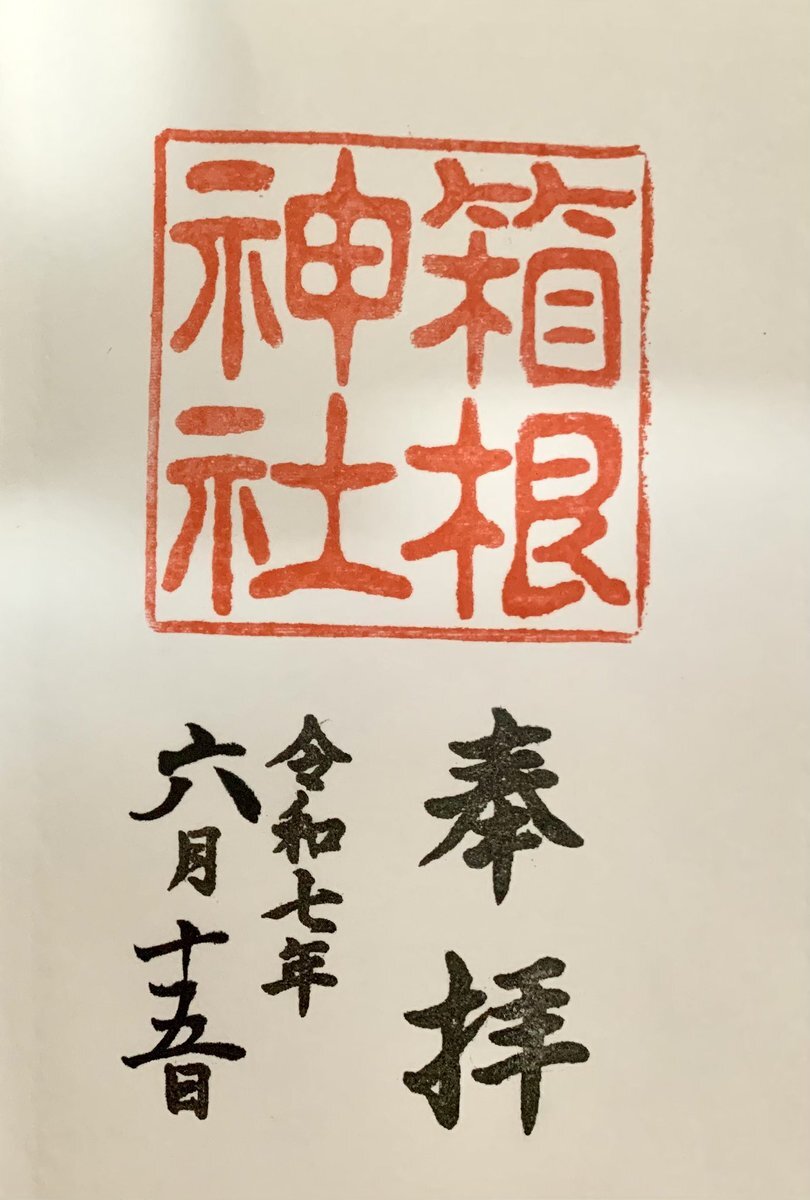 箱根
神社
奉拝
令和七年
六月十五日